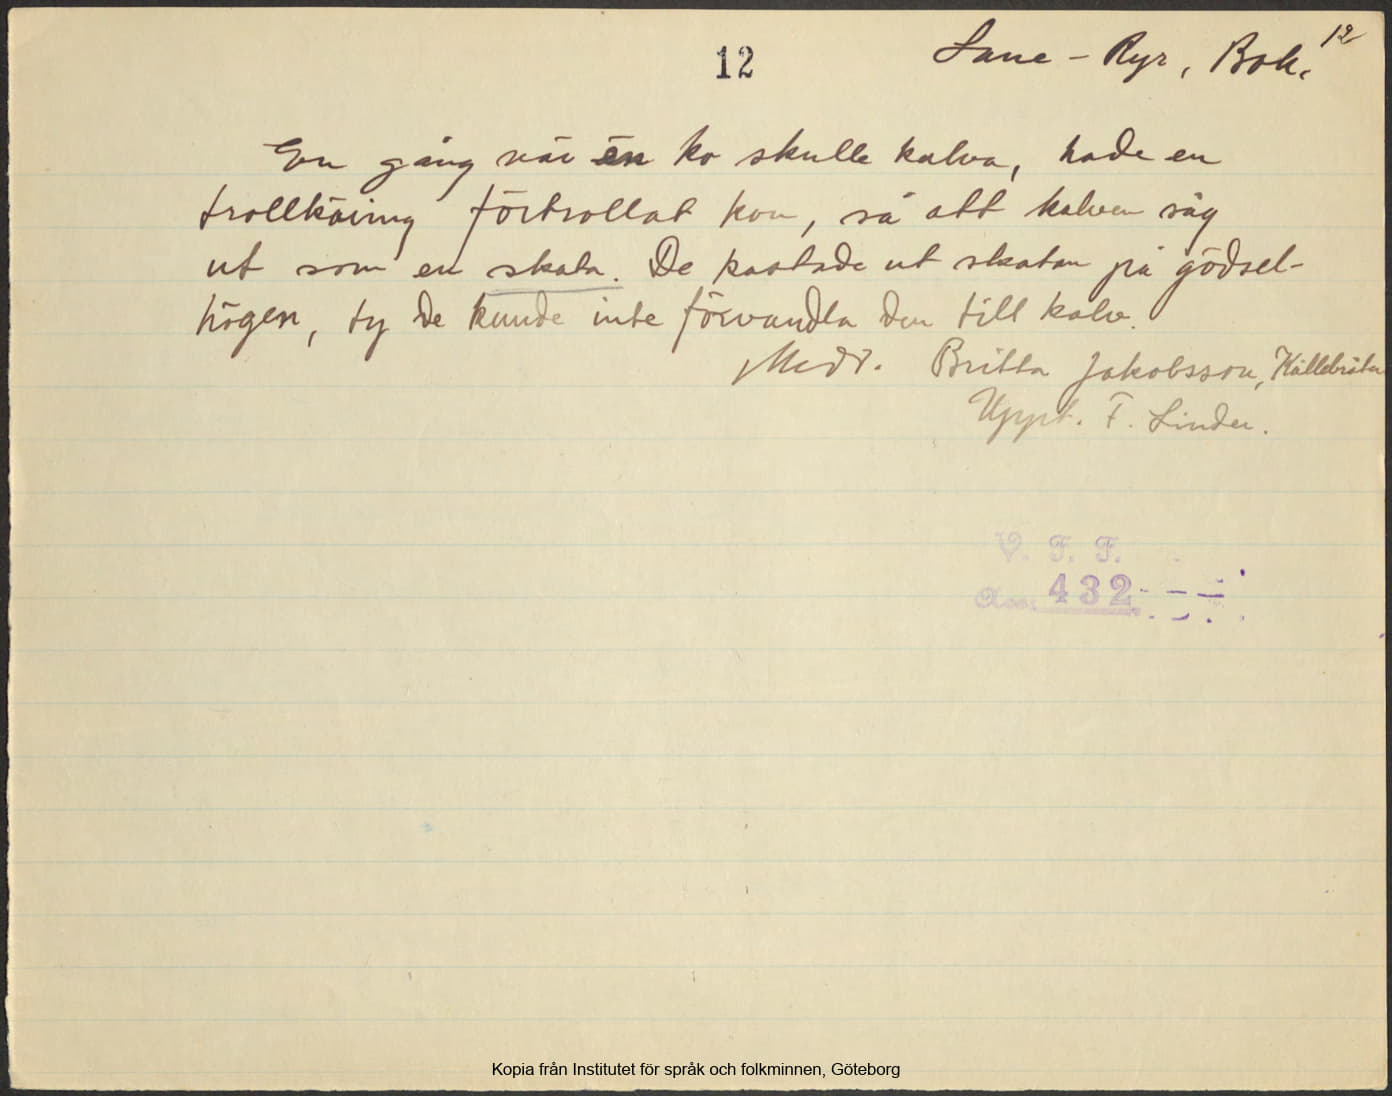 12
Lane-Ryr, Boh. 12
En gång när en ko skulle kalva, hade en
trollkäring förtrollat kon, så att kalven såg
ut som en skata. De kastade ut skatan på gödsel-
högen, ty de kunde inte förvandla den till kalv.
Medd. Britta Jakobsson,
Uppt. F. Linder.
V. F. F.
Acc. 432
Kopia från Institutet för språk och folkminnen, Göteborg